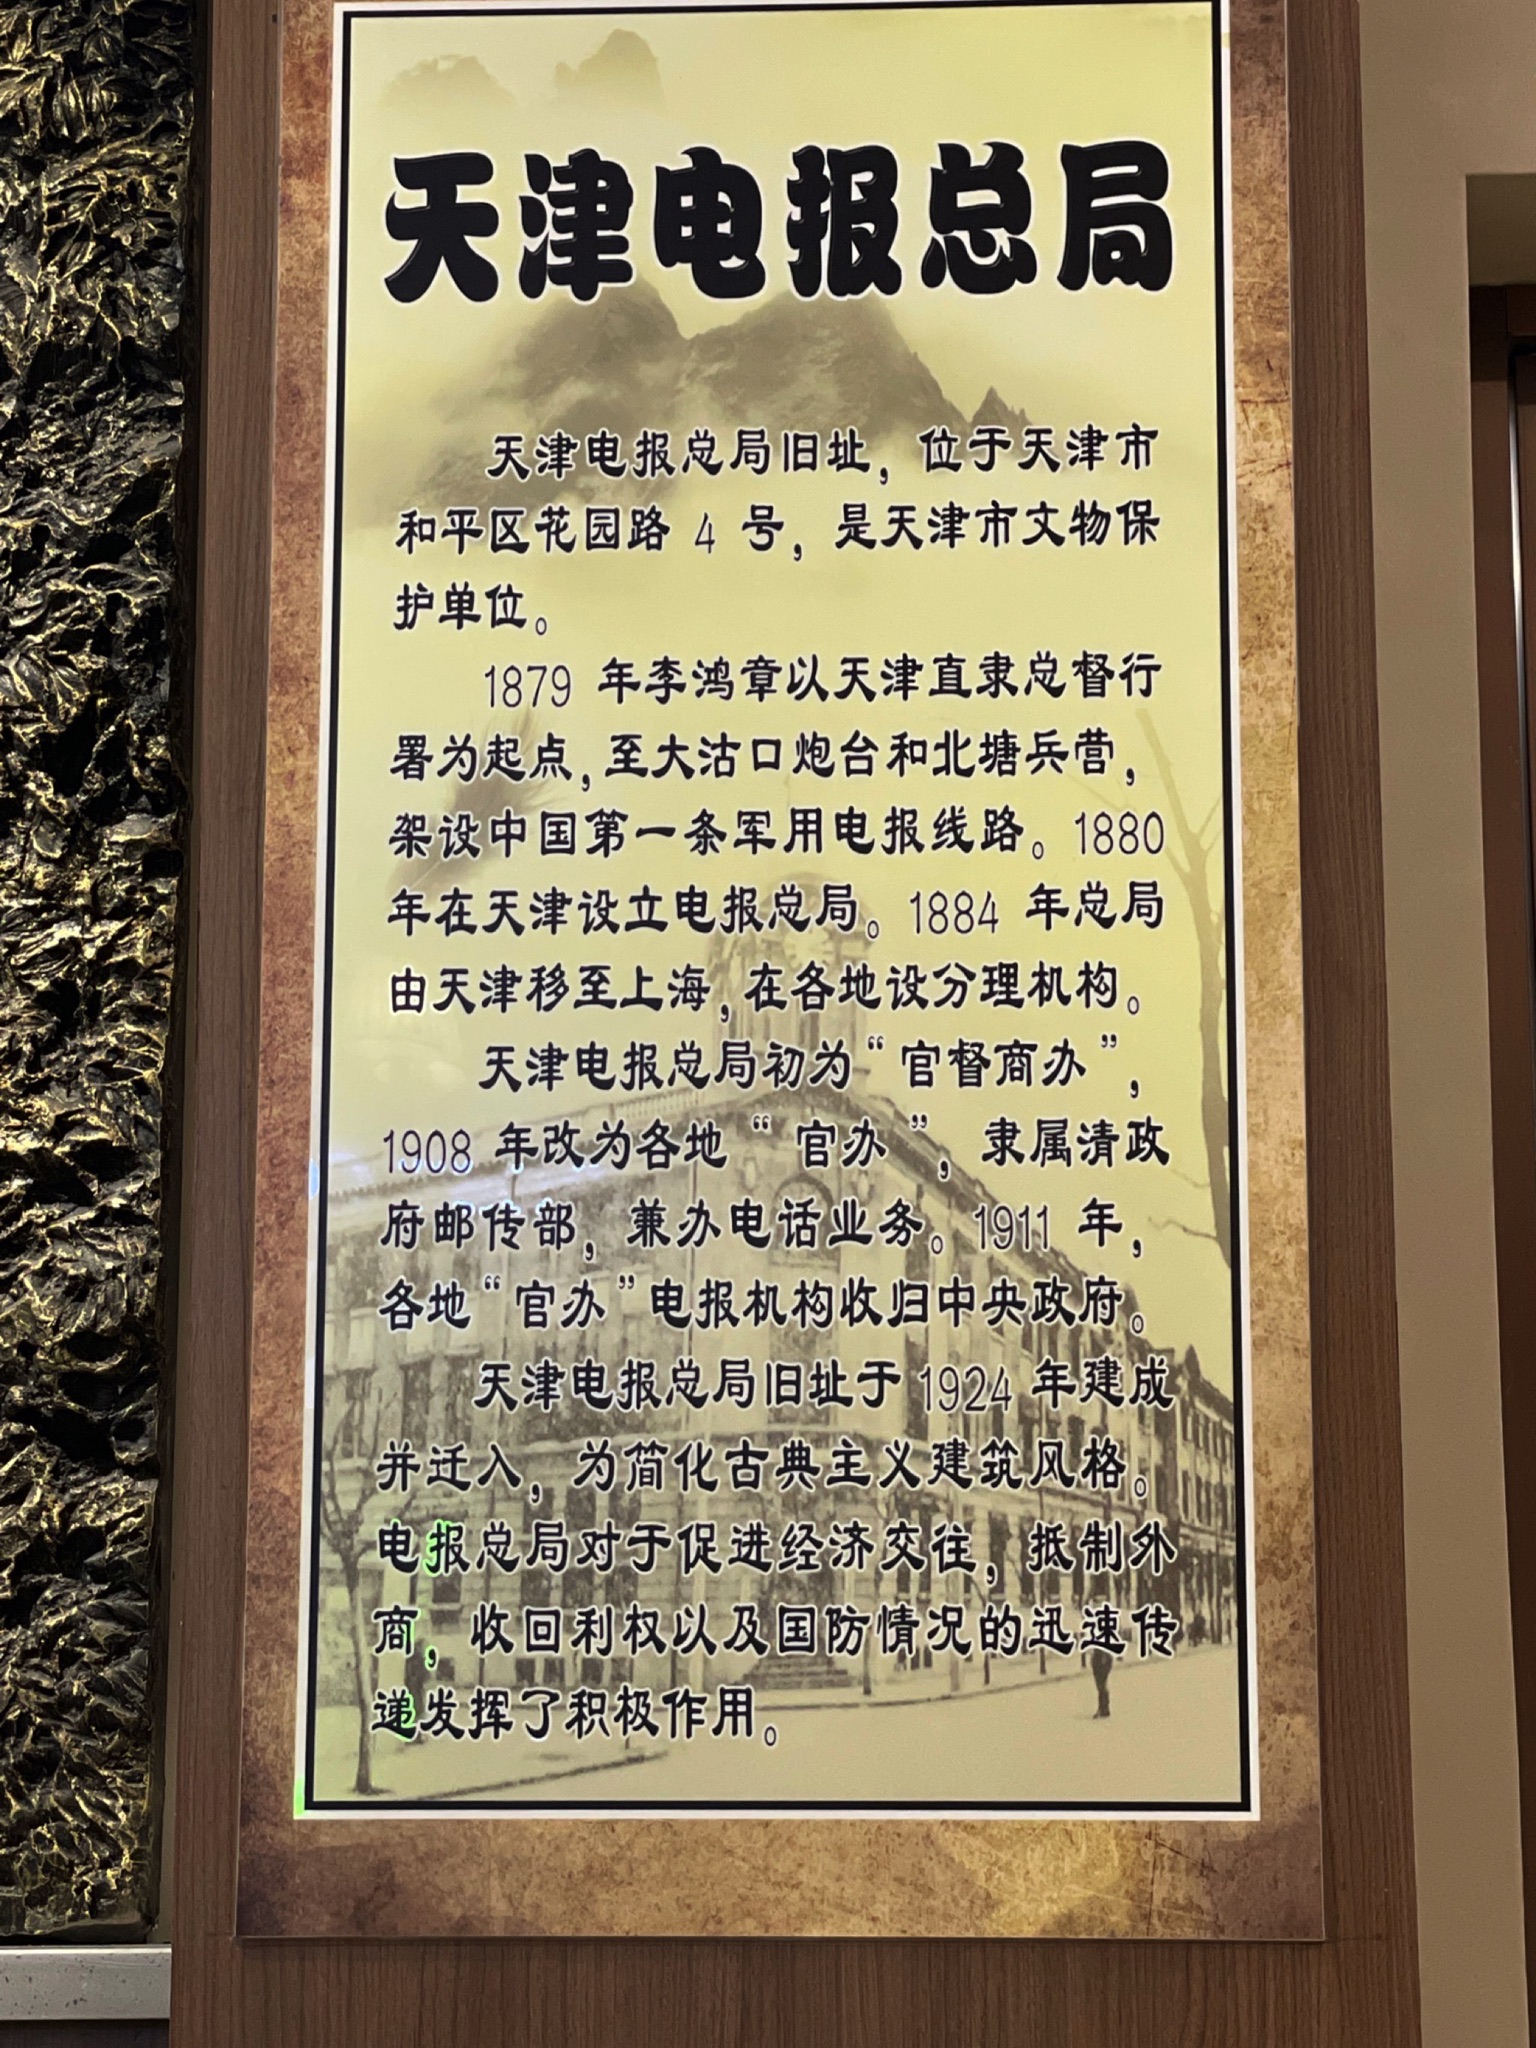 天津电报总局
天津电报总局旧址，位于天津市
和平区花园路 4 号，是天津市文物保
护单位。
1879 年李鸿章以天津直隶总督行
署为起点，至大沽口炮台和北塘兵营，
架设中国第一条军用电报线路。1880
年在天津设立电报总局。1884 年总局
由天津移至上海，在各地设分理机构。
天津电报总局初为“官督商办”，
1908 年改为各地“官办”，隶属清政
府邮传部，兼办电话业务。1911 年，
各地“官办”电报机构收归中央政府。
天津电报总局旧址于 1924 年建成
并迁入，为简化古典主义建筑风格。
电报总局对于促进经济交往，抵制外
商，收回利权以及国防情况的迅速传
递发挥了积极作用。